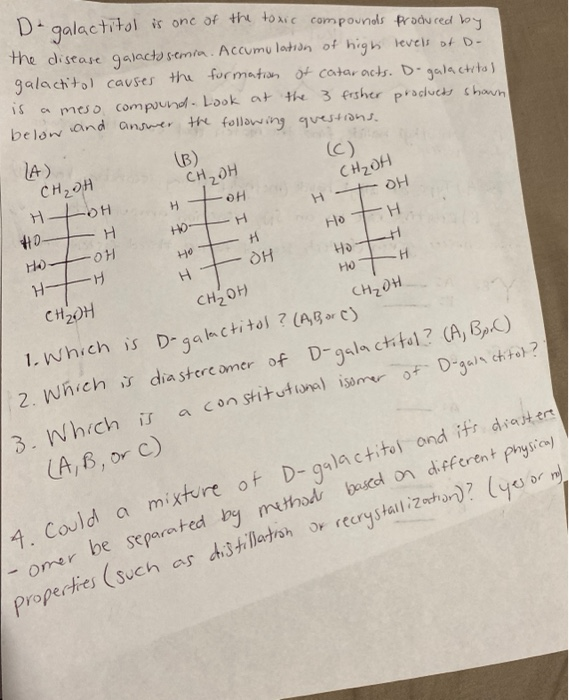 D-galactitol is one of the toxic compounds produced by
the disease galactosemia. Accumulation of high levels of D-
galactitol causes the formation of cataracts. D-galactitol
is a meso compound. Look at the 3 fisher products shown
below and answer the following questions.
(A) (B) (C)
CH2OH CH2OH CH2OH
H OH H OH H OH
HO H HO H HO H
HO OH HO H HO H
H H H OH HO H
CH2OH CH2OH CH2OH
1. Which is D-galactitol? (A,B,or C)
2. Which is diastereomer of D-galactitol? (A, B, C)
3. Which is a constitutional isomer of D-galactitol?
(A, B, or C)
4. Could a mixture of D-galactitol and it's diastere
-omer be separated by methods based on different physical
properties (such as distillation or recrystallization)? (yes or no)